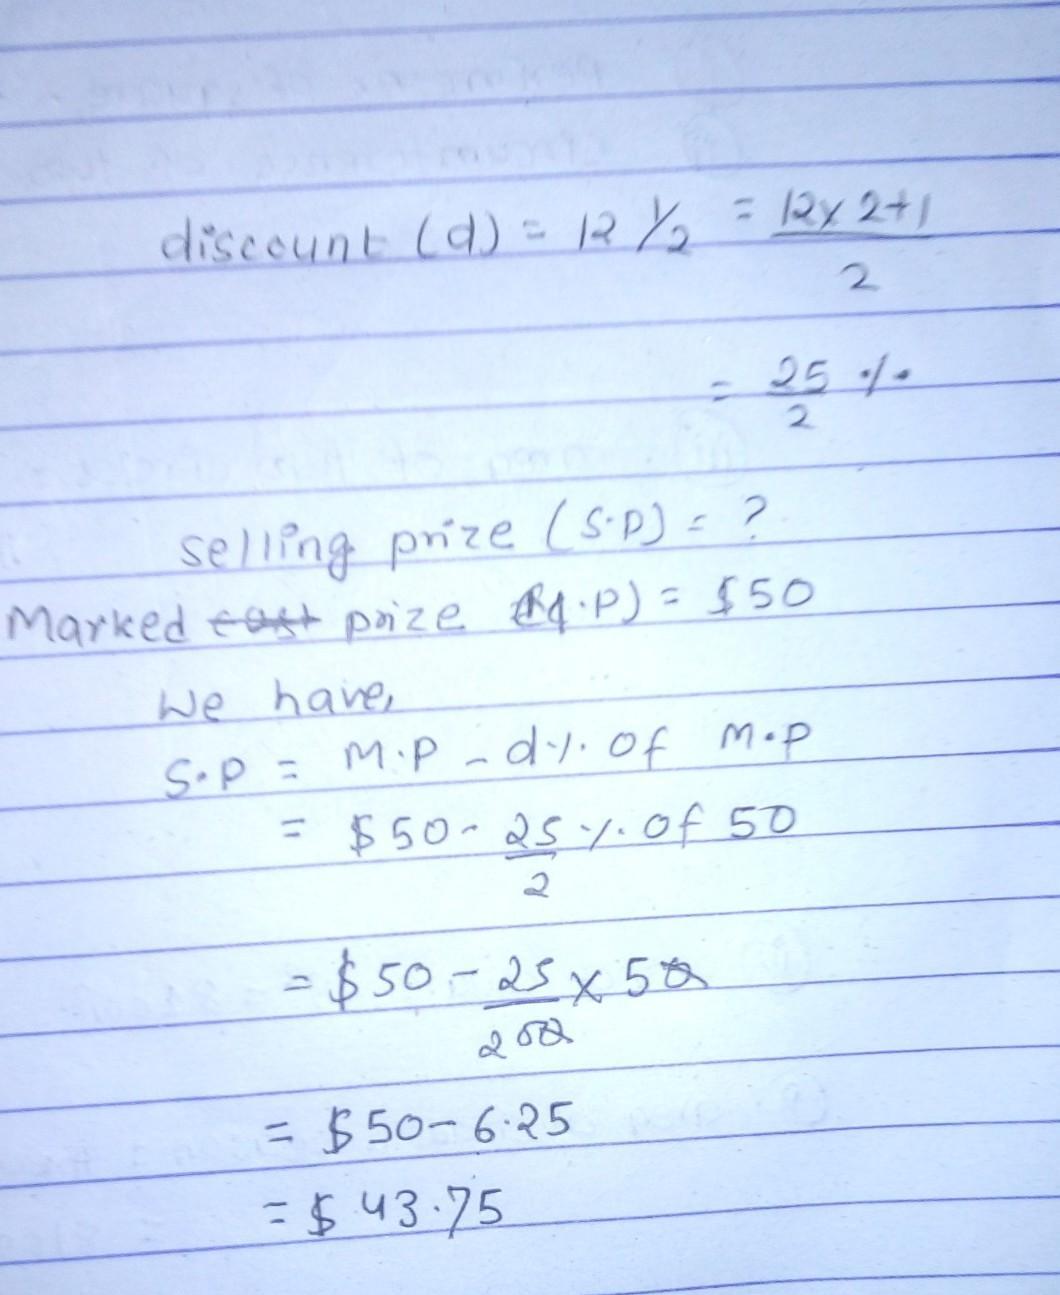 discount (d) = 12 1/2 = 12x2+1/2
= 25/2 %
selling prize (S.P) = ?
Marked prize (M.P) = $50
We have,
S.P = M.P - d% of M.P
= $50 - 25/2 % of 50
= $50 - 25/200 x 50
= $50 - 6.25
= $43.75